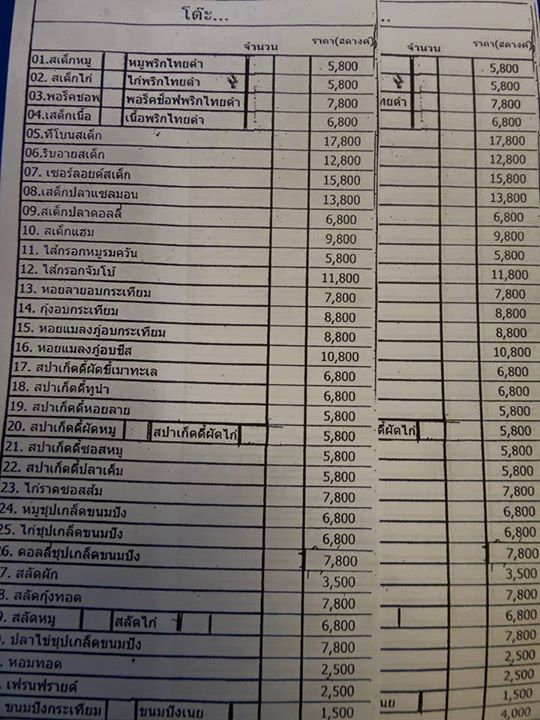 โต๊ะ...
..
จำนวน ราคา(สตางค์) จำนวน ราคา(สตางค์)
01.สเต็กหมู หมูพริกไทยดำ 5,800 5,800
02. สเต็กไก่ ไก่พริกไทยดำ 5,800 5,800
03.พอร็คชอพ พอร็คช็อฟพริกไทยดำ 7,800 ทยดำ 7,800
04.เสต็กเนื้อ เนื้อพริกไทยดำ 6,800 6,800
05.ทีโบนสเต็ก 17,800 17,800
06.ริบอายสเต็ก 12,800 12,800
07. เซอร์ลอยด์สเต็ก 15,800 15,800
08.เสต็กปลาแซลมอน 13,800 13,800
09.สเต็กปลาดอลลี่ 6,800 6,800
10. สเต็กแฮม 9,800 9,800
11. ไส้กรอกหมูรมควัน 5,800 5,800
12. ไส้กรอกจัมโบ้ 11,800 11,800
13. หอยลายอบกระเทียม 7,800 7,800
14. กุ้งอบกระเทียม 8,800 8,800
15. หอยแมลงภู่อบกระเทียม 8,800 8,800
16. หอยแมลงภู่อบชีส 10,800 10,800
17. สปาเก็ตตี้ผัดขี้เมาทะเล 6,800 6,800
18. สปาเก็ตตี้ทูน่า 6,800 6,800
19. สปาเก็ตตี้หอยลาย 5,800 5,800
20. สปาเก็ตตี้ผัดหมู สปาเก็ตตี้ผัดไก่ 5,800 ตี้ผัดไก่ 5,800
21. สปาเก็ตตี้ซอสหมู 5,800 5,800
22. สปาเก็ตตี้ปลาเค็ม 5,800 5,800
23. ไก่ราดซอสส้ม 7,800 7,800
24. หมูชุปเกล็ดขนมปัง 6,800 6,800
25. ไก่ชุปเกล็ดขนมปัง 6,800 6,800
26. ดอลลี่ชุปเกล็ดขนมปัง 7,800 7,800
7. สลัดผัก 3,500 3,500
8. สลัดกุ้งทอด 7,800 7,800
9. สลัดหมู สลัดไก่ 6,800 6,800
. ปลาไข่ชุปเกล็ดขนมปัง 7,800 7,800
. หอมทอด 2,500 2,500
. เฟรนฟรายด์ 2,500 2,500
ขนมปังกระเทียม ขนมปังเนย 1,500 เนย 1,500
4,000